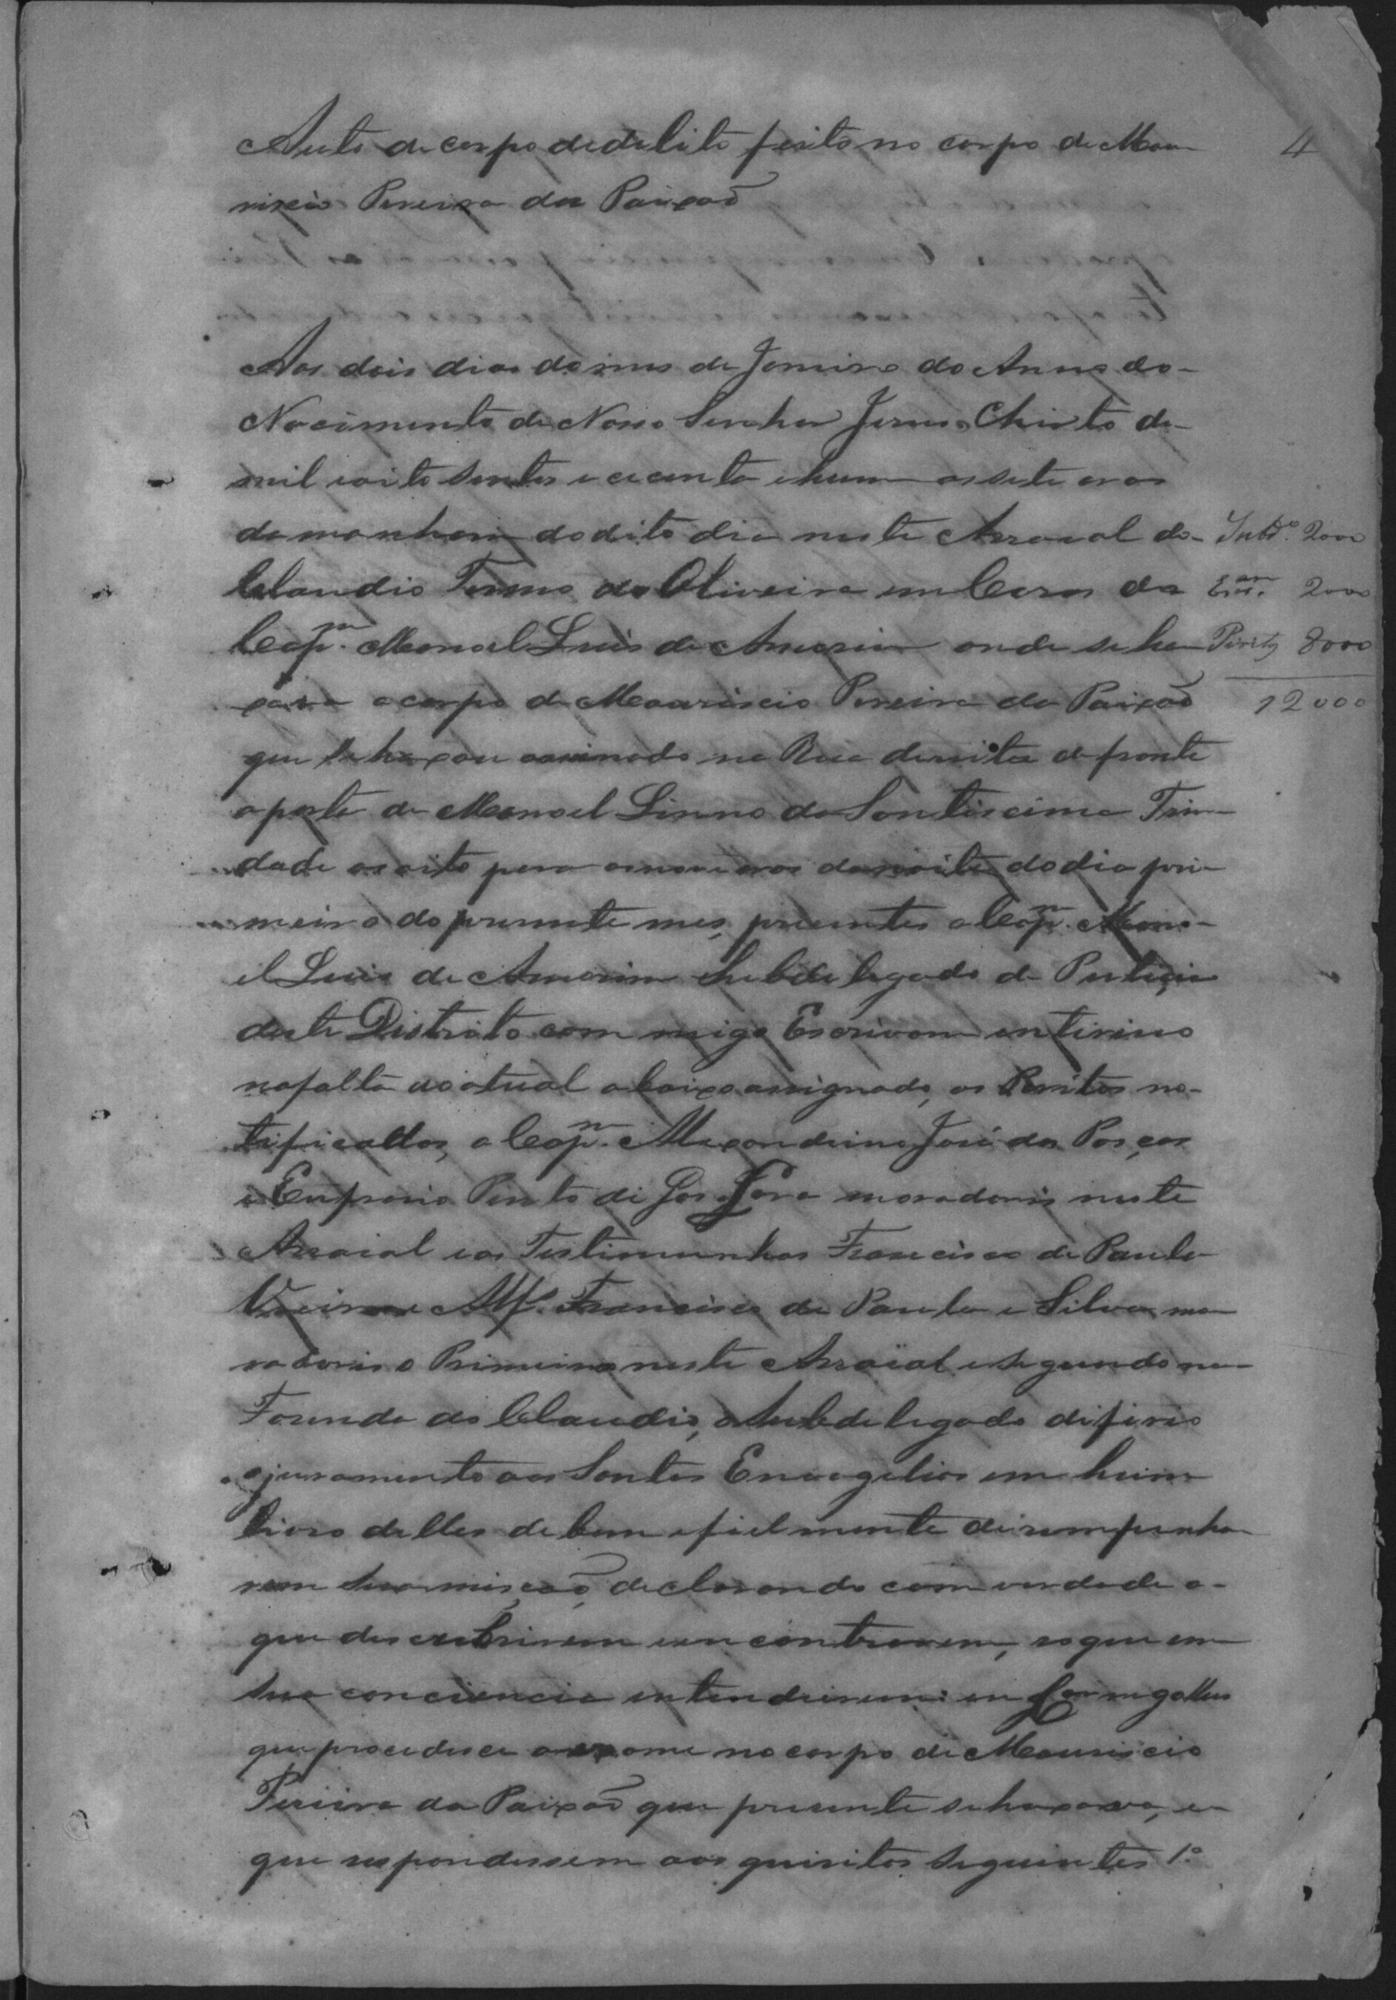 Auto de corpo dedelito feito no corpo de Mau-
4
riscio Pereira da Paixaõ
Aos dois dias do mes de Janeiro do Anno do
Nacimento de Nosso Senhor Jesus Christo de
mil oito sentos e cecenta e hum as sete oras
da manham do dito dia neste Arraial do
Subd.º 2000
Claudio Termo da Oliveira em Caza do
Esc.am 2000
Cap.m Manoel Luis de Amorim onde se ha
Peritos 8000
xava o corpo de Mauriscio Pereira da Paixaõ
12000
que se haxou asasinado na Rua dereita defronte
aporta de Manoel Linno da Santiscima Trin
dade as oito pera as nove oras da noite do dia pri
meiro do prezente mes, prezentes o Cap.m Mano-
el Luis de Amorim Subdelegado de Puliçia
deste Distrito com migo Escrivam enterino
nafalta do atual abaixo assignado, os Peritos no-
teficados, o Cap.m Alexandrino José das
e Eufrasio Pinto de moradores neste
Arraial e as Testimunhas Francisco de Paula
Vieira e Alf.s Francisco de Paula e Silva, mo
radores o Primeiro neste Arraial e Segundo na
Fazenda do Claudio, o Subdelegado diferio
o juramento aos Santos Envagelios em hum
livro delles de bem e fiel mente dezempenha
rem sua misçaõ, declarando com verdade o
que descrubrirem e en contrarem, e o que em
sua conciencia entenderem: e en Carregou lhes
que procedese o exame no corpo de Mauriscio
Pereira da Paixaõ que prezente se haxava, e
que respondessem aos quisitos Seguintes 1.º